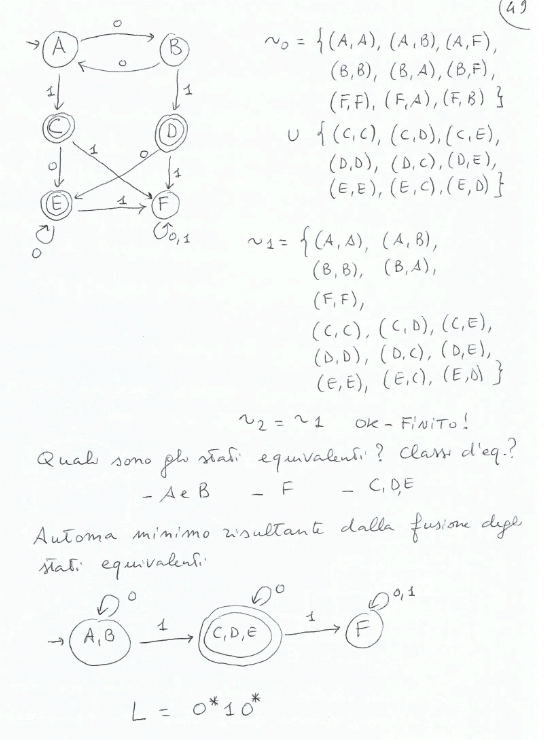 49
0
→ A B
0
1 1
C D
1 0
0 1
E 1 F
0 0,1
~0 = { (A,A), (A,B), (A,F),
(B,B), (B,A), (B,F),
(F,F), (F,A), (F,B) }
∪ { (C,C), (C,D), (C,E),
(D,D), (D,C), (D,E),
(E,E), (E,C), (E,D) }
~1 = { (A,A), (A,B),
(B,B), (B,A),
(F,F),
(C,C), (C,D), (C,E),
(D,D), (D,C), (D,E),
(E,E), (E,C), (E,D) }
~2 = ~1 OK - FINITO!
Quali sono gli stati equivalenti? Classi d'eq.?
- A e B - F - C,D,E
Automa minimo risultante dalla fusione degli
stati equivalenti
0 0 0,1
→ A,B 1 C,D,E 1 F
L = 0*10*